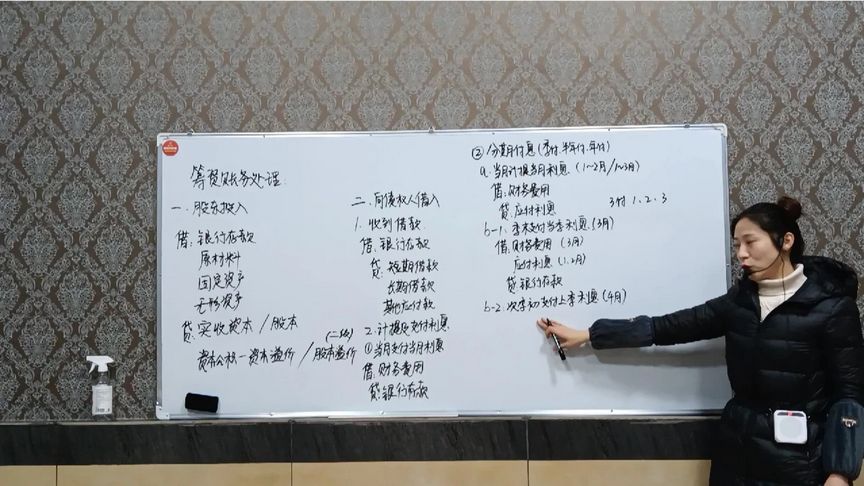 筹资账务处理
一、股东投入
借:银行存款
原材料
固定资产
无形资产
贷:实收资本/股本
资本公积—资本溢价/股本溢价
(二级)
二、向债权人借入
1.收到借款
借:银行存款
贷:短期借款
长期借款
其他应付款
2.计提及支付利息
①当月支付当月利息
借:财务费用
贷:银行存款
②分期付息(季付.半年付.年付)
a.当月计提当月利息(1~2月/1~3月)
借:财务费用
贷:应付利息 3付1、2、3
b-1.季末支付当季利息(3月)
借:财务费用(3月)
应付利息(1、2月)
贷:银行存款
b-2.次季初支付上季利息(4月)